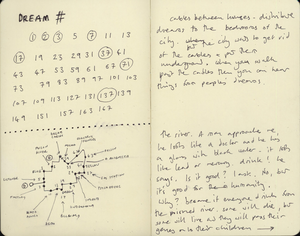 DREAM #
1 2 3 5 7 11 13
17 19 23 29 31 37 41
43 47 53 59 61 67 71
73 79 83 89 97 101 103
107 109 113 127 131 137 139
149 151 157 163 167
cables between houses - distribute
dreams to the bedrooms of the
city. the city wants to get rid
of the cables & put them
underground. when you walk
past the cables then you can hear
things from people's dreams
the river. A man approaches me,
he looks like a doctor and he has
a glass with black water. it looks
like lead or mercury. drink! he
says. Is it good? I ask. No, but
it's good for the humanity.
Why? because if everyone drinks from
the poisoned river, some will die, but
some will live and they will pass their
genes on to their children →